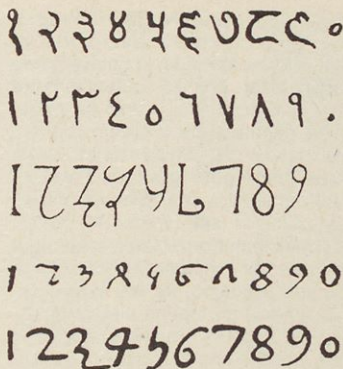 १ २ ३ ४ ५ ६ ७ ८ ९ ०
١ ٢ ٣ ٤ ٥ ٦ ٧ ٨ ٩ ٠
1 2 3 4 5 6 7 8 9
1 2 3 4 5 6 7 8 9 0
1 2 3 4 5 6 7 8 9 0